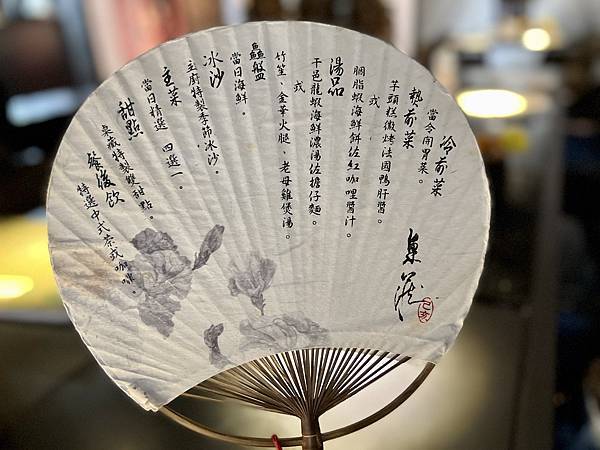 冷前菜
當令開胃菜。
熱前菜
芋頭糕微烤法國鴨肝醬。
或
胭脂蝦海鮮餅佐紅咖哩醬汁。
湯品
干邑龍蝦海鮮濃湯佐擔仔麵。
或
竹笙、金華火腿、老母雞煲湯。
蠡盤
當日海鮮。
冰沙
主廚特製季節冰沙。
主菜
當日精選 四選一。
甜點
臬藏特製雙甜點。
餐後飲
特選中式茶或咖啡。
己亥